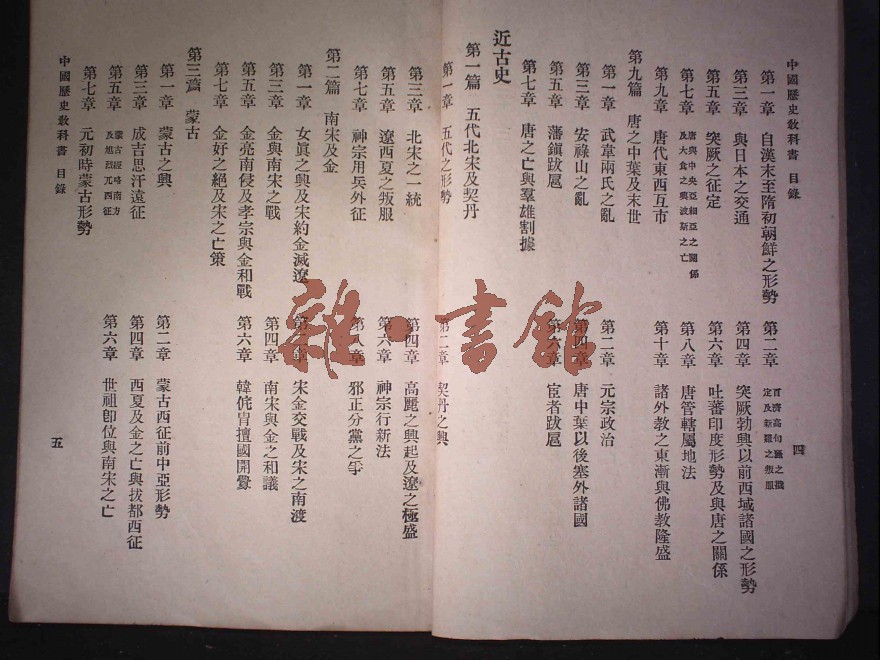 中國歷史敎科書 目錄
四
第一章 自漢末至隋初朝鮮之形勢
第二章 百濟高句驪之戡定及新羅之叛服
第三章 與日本之交通
第四章 突厥勃興以前西域諸國之形勢
第五章 突厥之征定
第六章 吐蕃印度形勢及與唐之關係
第七章 唐與中央亞細亞之關係及大食之興波斯之亡
第八章 唐管轄屬地法
第九章 唐代東西互市
第十章 諸外敎之東漸與佛敎隆盛
第九篇 唐之中葉及末世
第一章 武韋兩氏之亂
第二章 元宗政治
第三章 安祿山之亂
第四章 唐中葉以後塞外諸國
第五章 藩鎭跋扈
第六章 宦者跋扈
第七章 唐之亡與羣雄割據
近古史
第一篇 五代北宋及契丹
第一章 五代之形勢
第二章 契丹之興
第三章 北宋之一統
第四章 高麗之興起及遼之極盛
第五章 遼西夏之叛服
第六章 神宗行新法
第七章 神宗用兵外征
第八章 邪正分黨之爭
第二篇 南宋及金
第一章 女眞之興及宋約金滅遼
第二章 宋金交戰及宋之南渡
第三章 金與南宋之戰
第四章 南宋與金之和議
第五章 金亮南侵及孝宗與金和戰
第六章 韓侂冑擅國開釁
第七章 金好之絕及宋之亡策
第三篇 蒙古
第一章 蒙古之興
第二章 蒙古西征前中亞形勢
第三章 成吉思汗遠征
第四章 西夏及金之亡與拔都西征
第五章 蒙古經略南方及旭烈兀西征
第六章 世祖卽位與南宋之亡
第七章 元初時蒙古形勢
中國歷史敎科書 目錄
五
雜·書館